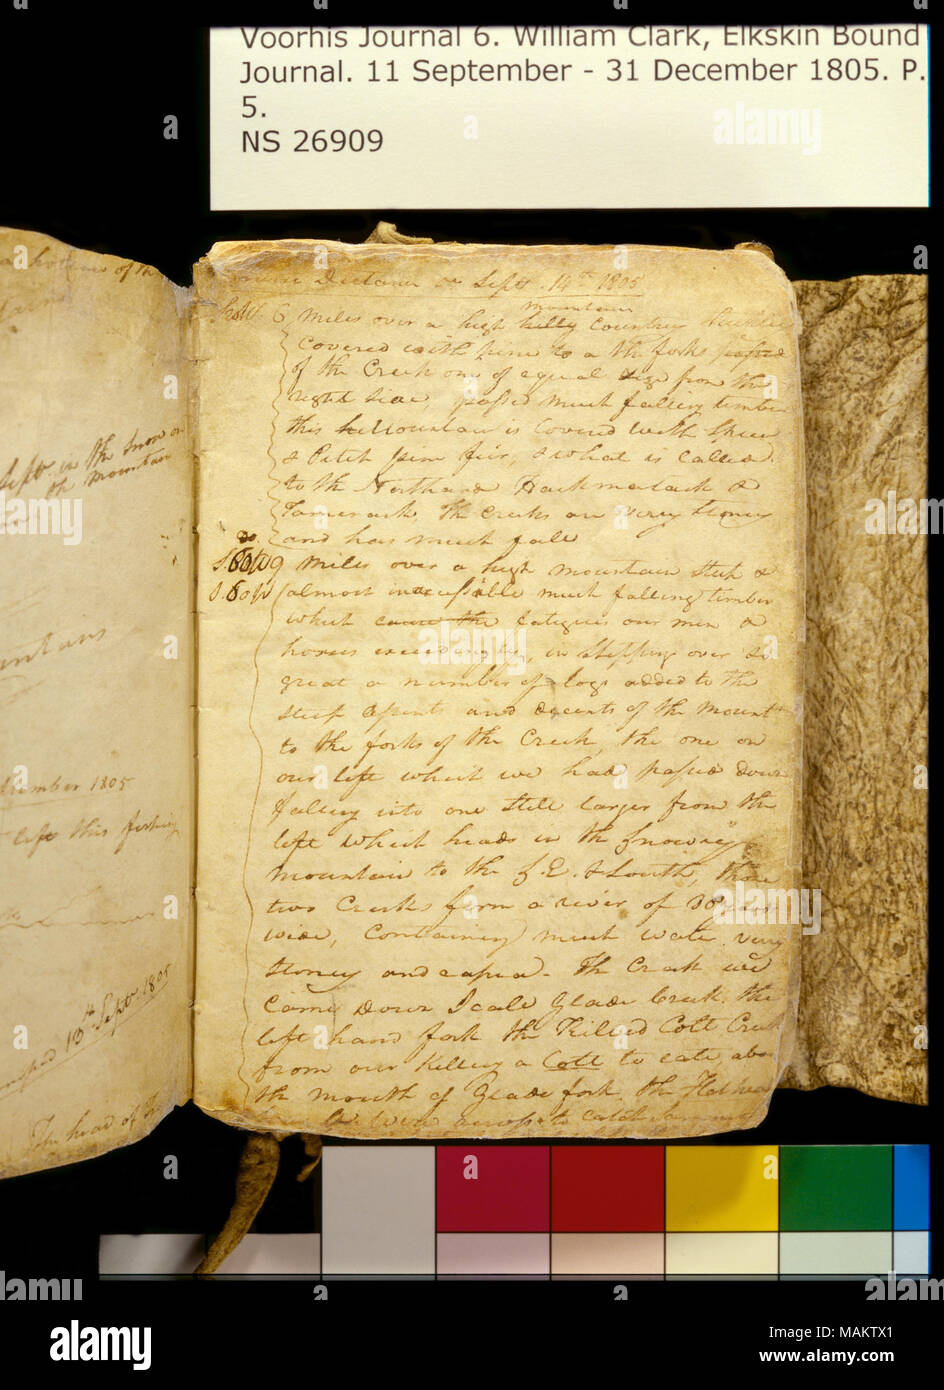 Voorhis Journal 6. William Clark, Elkskin Bound
Journal. 11 September - 31 December 1805. P.
5.
NS 26909
of the
Sept in the Snow on
th mountain
September 1805
left this
13th Sept 1805
The head of
Distance on Sept. 14th 1805
6 miles over a high hilly Country
mountain
Covered with pine to a the forks passed
of the Creek one of equal size from the
right side, passed much falling timber
this Mountain is Covered with
& Pitch pine fir, & what is Called
to th Northard Hackmatack &
Tamerack. Th Creeks are very stoney
and has much fall
do
S 60 W 9 miles over a high mountain steep &
S. 60 W almost inacussible much falling timber
which cause the fatigues our men &
horses exceedingly, in stepping over so
great a number of logs added to the
steep assents and decents of the Mounts
to the forks of the Creek, the one on
our left which we had passed down
falling into one still larger from the
left which heads in the Snowey
Mountain to the S.E. & South, those
two Creeks form a river of 80 yards
wide, Containing much water. very
stoney and rapid - Th Creek we
Came down I call Glade Creek. the
left hand fork the Killed Colt Creek
from our Killing a Colt to eate, abov
the mouth of Glade fork, the Flathead
across to catch
a alamy stock photo
alamy
Image ID: MAKTX1
www.alamy.com